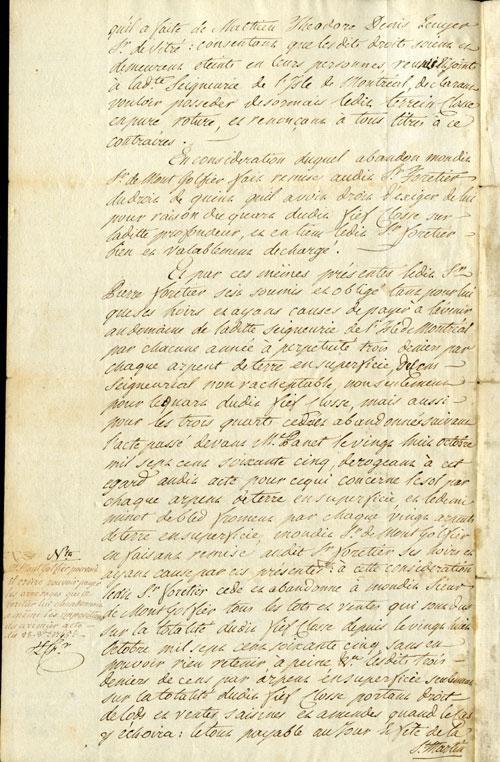 quil a faite de Mathieu Theodore Denis Ecuyer
Sr. de Vitré : consentant que lesdits droits soient et
demeurent éteints en leurs personnes reunis & joints
à ladte. Seigneurie de l'Isle de Montréal, declarant
vouloir posseder desormais ledit terrein Closse
en pure roture, et renonçant à tous titres à ce
contraires :
En consideration duquel abandon mondit
Sr. de Montgolfier fait remise audit Sr. foretier
du droit de quint quil avoit droit d'exiger de lui
pour raison du quart dudit fief Closse sur
ladite profondeur, et en tient ledit Sr. foretier
bien et valablement dechargé.
Et par ces mêmes presentes ledit Sr.
Pierre foretier s'est soumis et obligé tant pour lui
que ses hoirs et ayans causes de payer à l'avenir
au domaine de ladite seigneurie de l'Isle de Montréal
par chacune année à perpetuité trois deniers par
chaque arpent de terre en superficie, de cens
seigneurial non racheptable, non seulement
pour le quart dudit fief Closse, mais aussi
pour les trois quarts cedés et abandonnés suivant
l'acte passé devant Me. Panet le vingt huit octobre
mil sept cent soixante cinq, derogeant à cet
egard audit acte pour ce qui concerne le sol par
chaque arpent de terre en superficie et le demi
minot de bled froment par chaque vingt arpents
de terre en superficie, mondit Sr. de Montgolfier
en faisant remise audit Sr. foretier ses hoirs et
ayans cause par ces presentes : à cette consideration
ledit Sr. foretier cede et abandonne à mondit Sieur
de Montgolfier tous les lots et ventes qui sont dus
sur la totalité dudit fief Closse depuis le vingt huit
Octobre mil sept cent soixante cinq, sans en
pouvoir rien retenir à peine &c. lesdits trois
deniers de cens par arpent en superficie seulement
sur la totalité dudit fief Closse portant droit
de lods et ventes, saisines et amendes quand le cas
y echoira : le tout payable au Jour & fête de la
St. Martin
Nta.